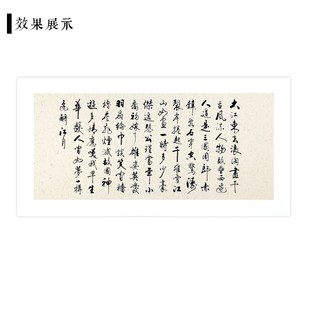 效果展示
大江東去浪淘盡千
古風流人物故壘西邊
人道是三國周郎赤
壁亂石穿空驚濤
裂岸捲起千堆雪江
山如畫一時多少豪
傑遙想公瑾當年小
喬初嫁了雄姿英發
羽扇綸巾談笑間檣
櫓灰飛煙滅故國神
遊多情應笑我早生
華髮人間如夢一樽
還酹江月